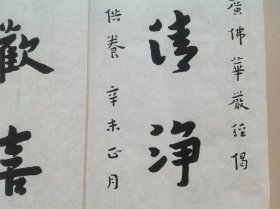 廣佛華嚴經偈
清淨
供養 辛未正月
歡喜